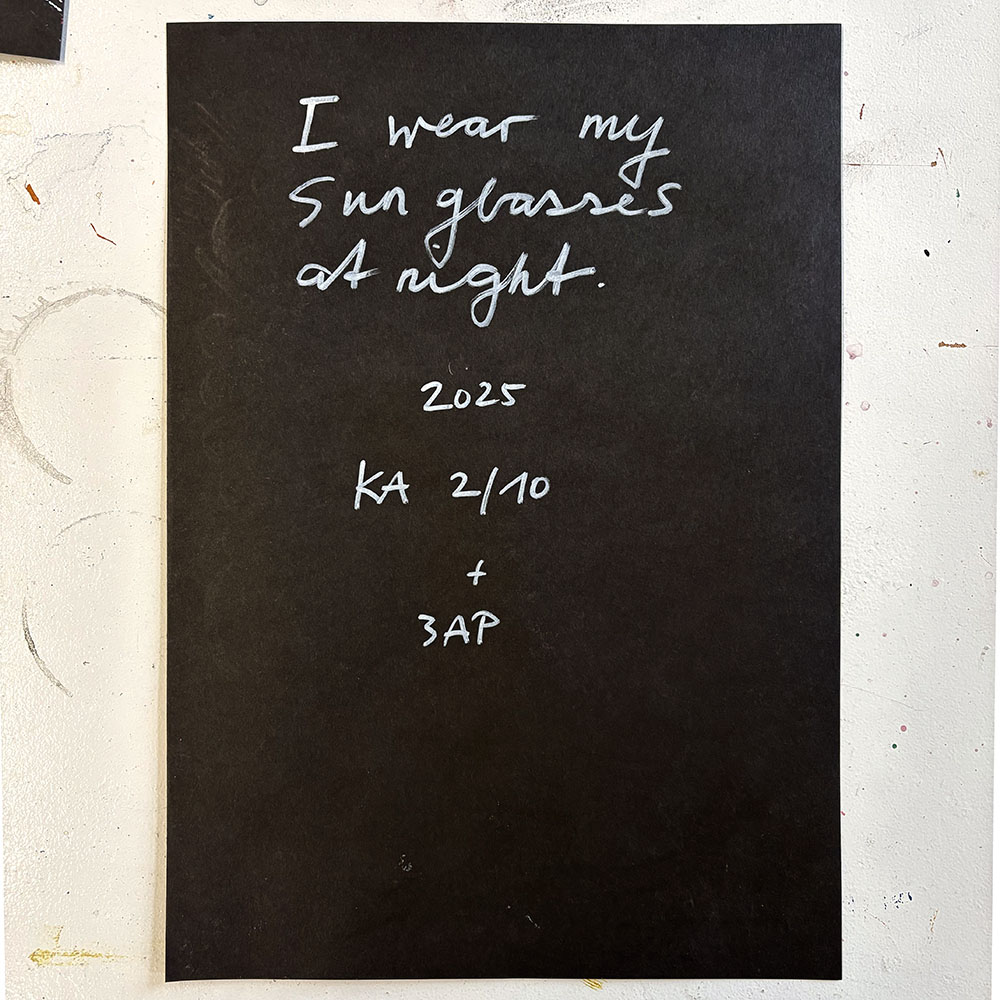 I wear my
Sun glasses
at night.
2025
KA 2/10
+
3AP